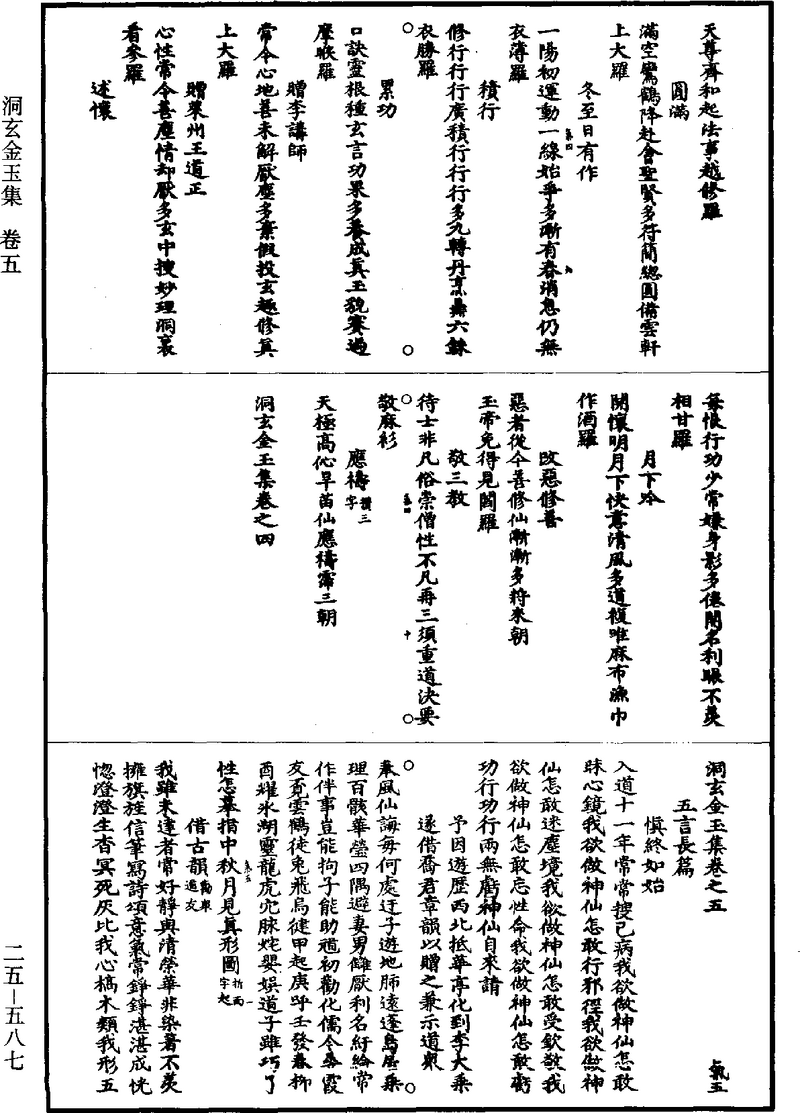 洞玄金玉集 卷五
二五—五八七
天尊齊和起法事越修羅
圓滿
滿空鸞鶴降赴會聖賢多符簡總圓備雲軒
上大羅
冬至日有作
一陽初運動一線始爭多漸有春消息仍無
衣薄羅
積行
修行行行廣積行行行多九轉丹烹鼎六銖
衣勝羅
累功
口訣靈根種玄言功果多養成真玉貌賽過
摩睺羅
贈李講師
常令心地善未解厭塵多棄假投玄趣修真
上大羅
贈萊州王道正
心性常令善塵情却厭多玄中搜妙理洞裏
看參羅
述懷
每恨行功少常嫌身影多倦聞名利眼不羨
相甘羅
月下吟
開懷明月下快意清風多道複唯麻布漁巾
作酒羅
改惡修善
惡者從今善修仙漸漸多將來朝
玉帝免得見閻羅
敬三教
待士非凡俗崇僧性不凡再三須重道決要
敬麻衫
應禱 讚三字
天極高心早苗仙應禱霈三朝
洞玄金玉集卷之四
洞玄金玉集卷之五
氣五
五言長篇
慎終如始
入道十一年常常搜己病我欲做神仙怎敢
昧心鏡我欲做神仙怎敢行邪徑我欲做神
仙怎敢迷塵境我欲做神仙怎敢受欽敬我
欲做神仙怎敢忘性命我欲做神仙怎敢虧
功行功行兩無虧神仙自來請
予因遊歷西北抵華亭化到李大乘
遂借喬君章韻以贈之兼示道眾
乘風仙誨每何處迓子遊地肺遠蓬島屋乘
理百骸華瑩四隅避妻男讎厭利名紆綸常
作伴事豈能拘子能助過初勸化儒令喦霞
友覔雲鶴徒兔飛烏健甲起庚呼壬發春柳
酉躍氷湖靈龍虎穴脉姹嬰娛道子雖巧了
性怎摹指中秋月見真形圖 折而字起
借古韻 勸衆道友
我雖未達者常好靜與清榮華非染着不羨
擁旗旌信筆寫詩頌意氣常錚錚湛湛成恍
惚澄澄生杳冥死灰比我心槁木類我形五